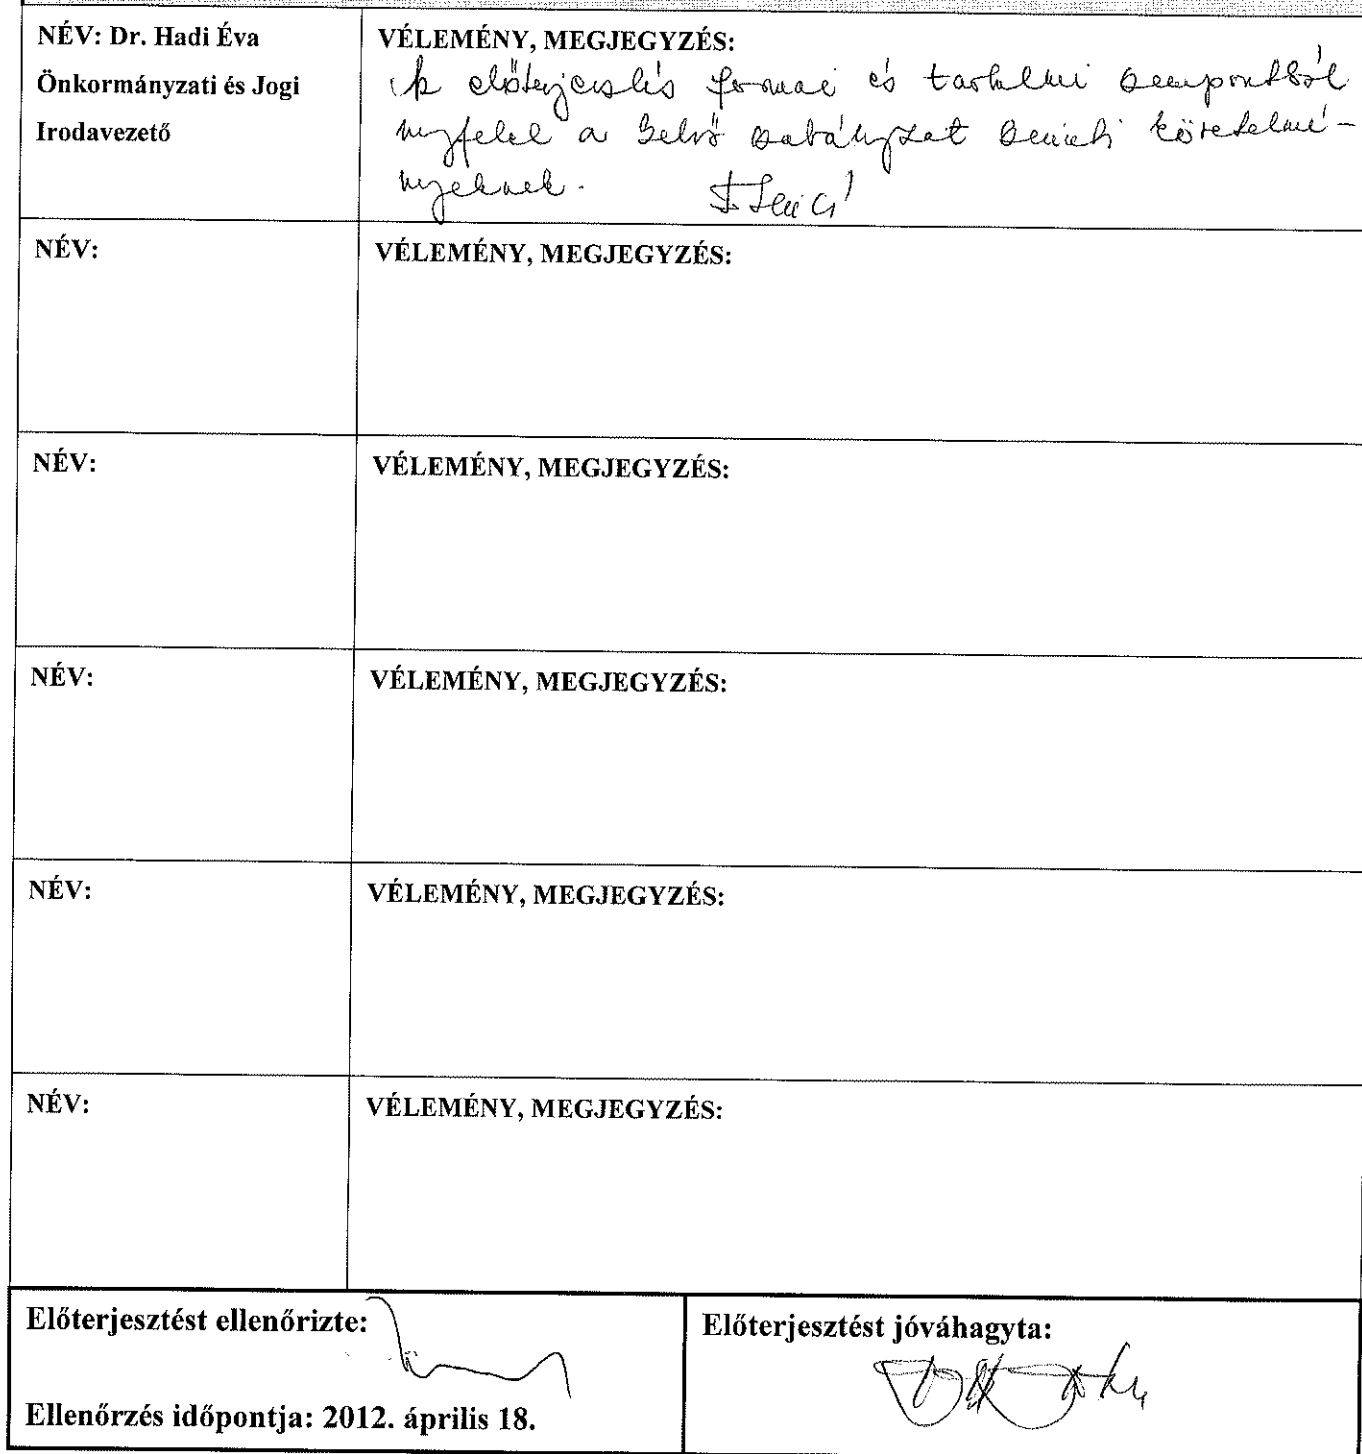 NÉV: Dr. Hadi Éva
Önkormányzati és Jogi
Irodavezető
VÉLEMÉNY, MEGJEGYZÉS:
Az előterjesztés formai és tartalmi szempontból
megfelel a belső szabályzat szerinti követelmé-
nyeknek.
NÉV:
VÉLEMÉNY, MEGJEGYZÉS:
NÉV:
VÉLEMÉNY, MEGJEGYZÉS:
NÉV:
VÉLEMÉNY, MEGJEGYZÉS:
NÉV:
VÉLEMÉNY, MEGJEGYZÉS:
NÉV:
VÉLEMÉNY, MEGJEGYZÉS:
Előterjesztést ellenőrizte:
Ellenőrzés időpontja: 2012. április 18.
Előterjesztést jóváhagyta: